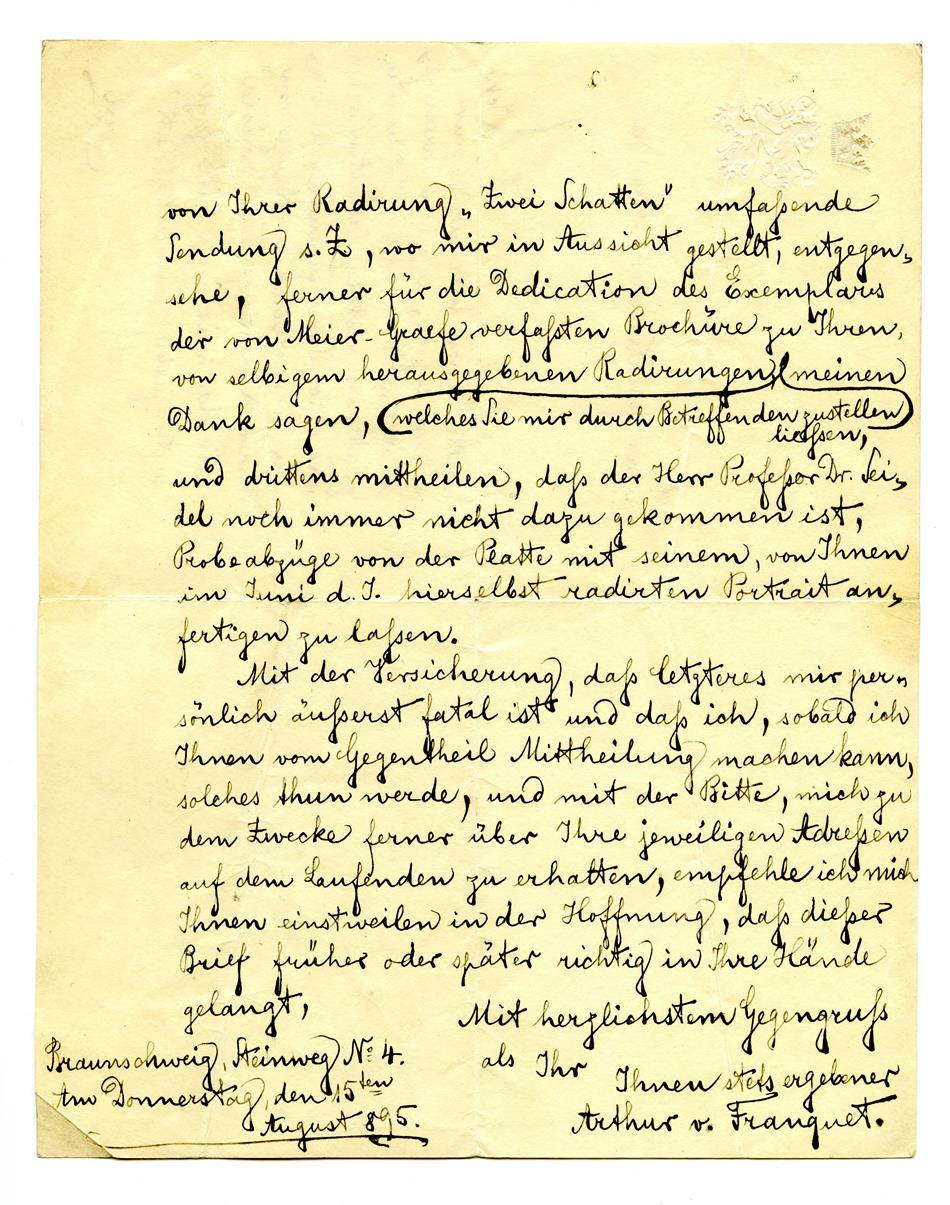 von Ihrer Radirung „Zwei Schatten" umfaßende
Sendung s. Z, wo mir in Aussicht gestellt, entgegen-
sehe, ferner für die Dedication des Exemplars
der von Meier-Graefe verfaßten Brochüre zu Ihren,
von selbigem herausgegebenen Radirungen, meinen
Dank sagen, (welches Sie mir durch Betreffenden zustellen
ließen,)
und drittens mittheilen, daß der Herr Profeßor Dr. Sei-
del noch immer nicht dazu gekommen ist,
Probeabzüge von der Platte mit seinem, von Ihnen
im Juni d. J. hierselbst radirten Portrait an-
fertigen zu laßen.
Mit der Versicherung, daß letzteres mir per-
sönlich äußerst fatal ist und daß ich, sobald ich
Ihnen vom Gegentheil Mittheilung machen kann,
solches thun werde, und mit der Bitte, mich zu
dem Zwecke ferner über Ihre jeweiligen Adreßen
auf dem Laufenden zu erhalten, empfehle ich mich
Ihnen einstweilen in der Hoffnung, daß dießer
Brief früher oder später richtig in Ihre Hände
gelangt,
Mit herzlichstem Gegengruß
als Ihr
Ihnen stets ergebener
Arthur v. Franquet.
Braunschweig, Steinweg No 4.
Am Donnerstag, den 15ten
August 895.